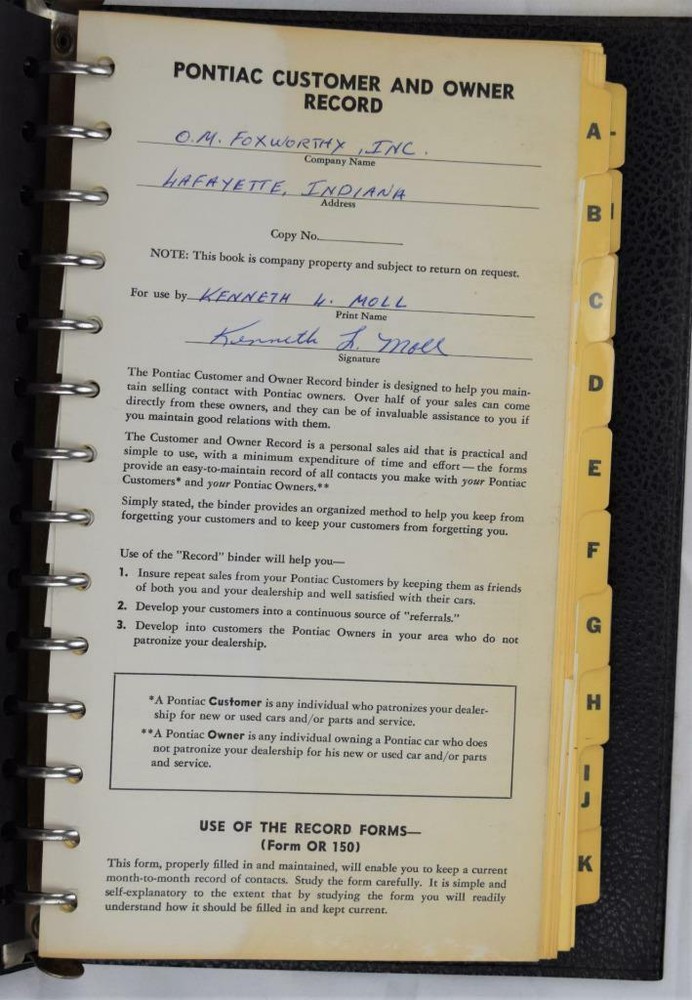 PONTIAC CUSTOMER AND OWNER
RECORD
O.M. FOXWORTHY, INC.
Company Name
LAFAYETTE, INDIANA
Address
Copy No.
NOTE: This book is company property and subject to return on request.
For use by KENNETH L. MOLL
Print Name
Kenneth L. Moll
Signature
The Pontiac Customer and Owner Record binder is designed to help you main-
tain selling contact with Pontiac owners. Over half of your sales can come
directly from these owners, and they can be of invaluable assistance to you if
you maintain good relations with them.
The Customer and Owner Record is a personal sales aid that is practical and
simple to use, with a minimum expenditure of time and effort—the forms
provide an easy-to-maintain record of all contacts you make with your Pontiac
Customers* and your Pontiac Owners.**
Simply stated, the binder provides an organized method to help you keep from
forgetting your customers and to keep your customers from forgetting you.
Use of the "Record" binder will help you—
1. Insure repeat sales from your Pontiac Customers by keeping them as friends
of both you and your dealership and well satisfied with their cars.
2. Develop your customers into a continuous source of "referrals."
3. Develop into customers the Pontiac Owners in your area who do not
patronize your dealership.
*A Pontiac Customer is any individual who patronizes your dealer-
ship for new or used cars and/or parts and service.
**A Pontiac Owner is any individual owning a Pontiac car who does
not patronize your dealership for his new or used car and/or parts
and service.
USE OF THE RECORD FORMS—
(Form OR 150)
This form, properly filled in and maintained, will enable you to keep a current
month-to-month record of contacts. Study the form carefully. It is simple and
self-explanatory to the extent that by studying the form you will readily
understand how it should be filled in and kept current.
A
B
C
D
E
F
G
H
I
J
K